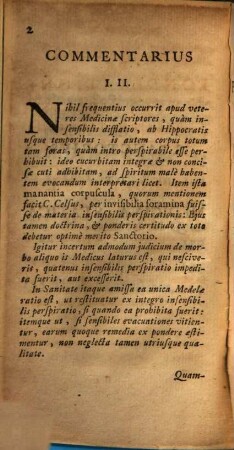 2
COMMENTARIUS
I. II.
Nihil frequentius occurrit apud vete-
res Medicinæ scriptores, quàm in-
sensibilis difflatio, ab Hippocratis
usque temporibus: is autem corpus totum
tam foràs, quàm intro perspirabile esse per-
hibuit: ideo cucurbitam integræ & non conci-
sæ cuti adhibitam, ad spiritum malè habentem
evocandum interpretari licet. Item ista
manantia corpuscula, quorum mentionem
facit C. Celsus, per invisibilia foramina suis-
se de materia insensibilis perspirationis: Ejus
tamen doctrina, & ponderis certitudo ex toto
debetur optimè merito Sanctorio.
Igitur incertum admodum judicium de mor-
bo aliquo is Medicus laturus est, qui nescive-
ris, quatenus insensibilis perspiratio impedi-
ta fuerit, aut excesserit.
In Sanitate itaque amissa ea unica Medelæ
ratio est, ut restituatur ex integro insensibi-
lis perspiratio, si quando ea prohibita fuerit:
itemque ut, si sensibiles evacuationes vitien-
tur, earum quoque remedia ex pondere æsti-
mentur, non neglecta tamen utriusque qua-
litate.
Quam-